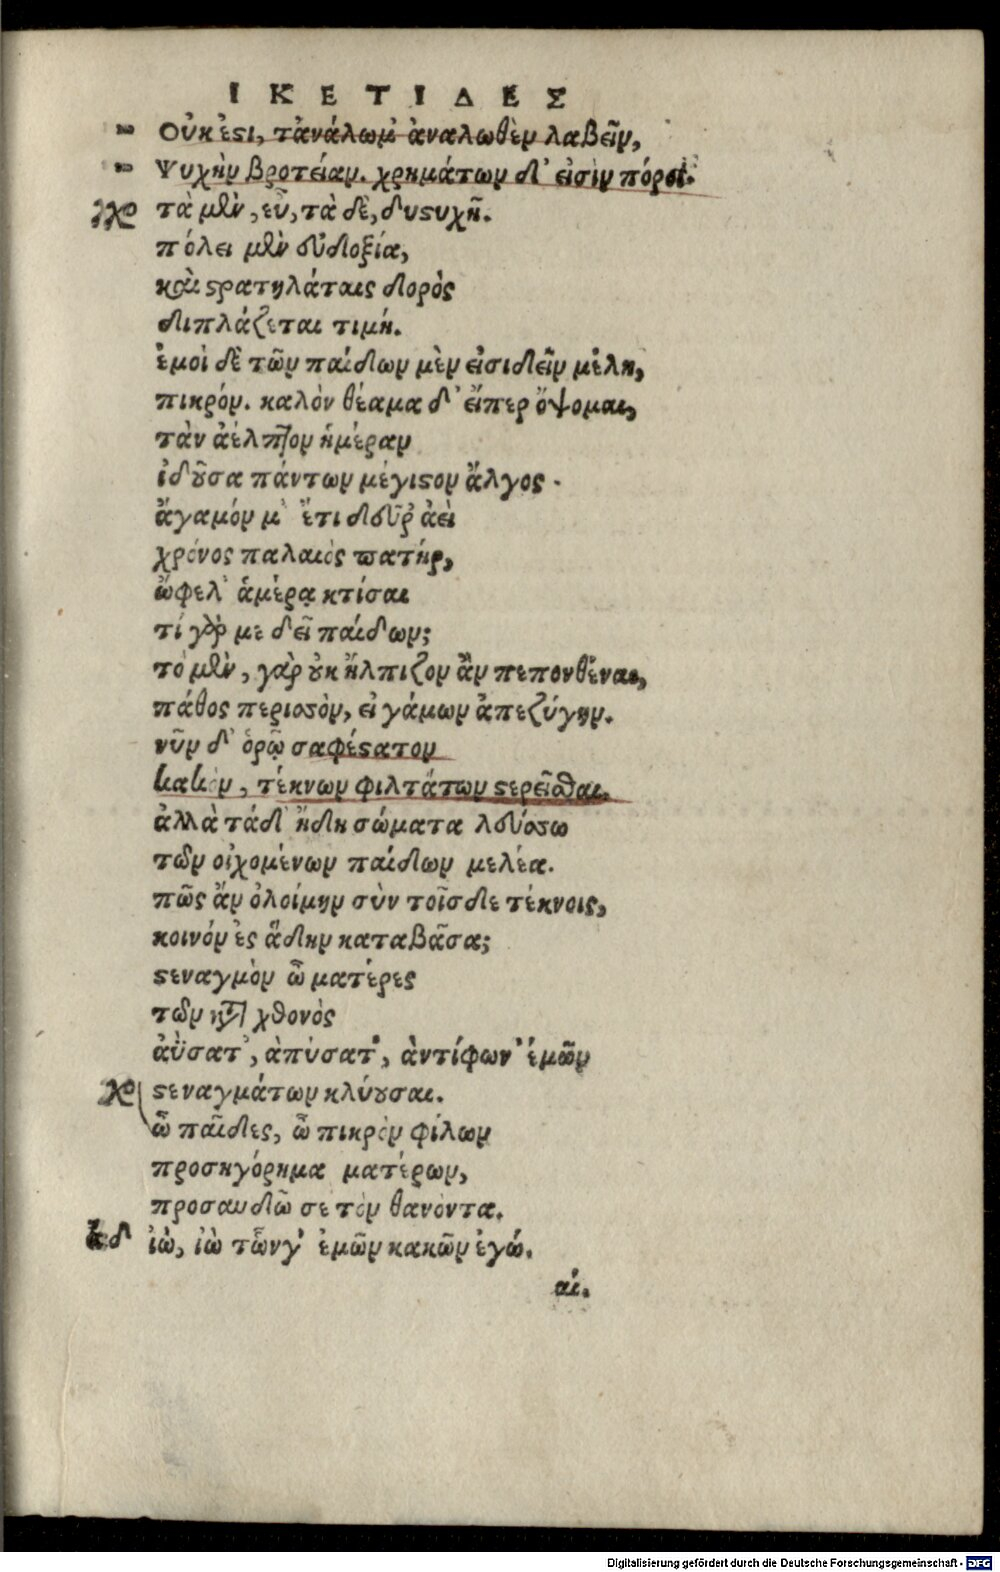 ΙΚΕΤΙΔΕΣ
Οὐκ ἔστι, τἀνάλωμ' ἀναλωθὲν λαβεῖν,
Ψυχὴν βροτείαν. χρημάτων δ' εἰσὶν πόροι.
χο τὰ μὲν, εὖ, τὰ δὲ, δυστυχῆ.
πόλει μὲν εὐδοξία,
καὶ στρατηλάταις δορὸς
διπλάζεται τιμή.
ἐμοὶ δὲ τῶν παίδων μὲν εἰσιδεῖν μέλη,
πικρόν. καλὸν θέαμα δ' εἴπερ ὄψομαι,
τὰν ἀέλπτον ἡμέραν
ἰδοῦσα πάντων μέγιστον ἄλγος.
ἄγαμόν μ' ἔτι δεῦρ' ἀεὶ
χρόνος παλαιὸς πατήρ,
ὤφελ' ἁμέρᾳ κτίσαι
τί γάρ με δεῖ παίδων;
τὸ μὲν, γὰρ οὐκ ἤλπιζον ἂν πεπονθέναι,
πάθος περισσὸν, εἰ γάμων ἀπεζύγην.
νῦν δ' ὁρῷ σαφέστατον
κακὸν, τέκνων φιλτάτων στερεῖσθαι.
ἀλλὰ τάδ' ἤδη σώματα λεύσσω
τῶν οἰχομένων παίδων μελέα.
πῶς ἂν ὀλοίμην σὺν τοῖσδε τέκνοις,
κοινόν ἐς ἅδην καταβᾶσα;
στεναγμὸν ὦ ματέρες
τῶν κατὰ χθονὸς
ἀΰσατ', ἀπύσατ', ἀντίφων' ἐμῶν
χο στεναγμάτων κλύουσαι.
ὦ παῖδες, ὦ πικρὸν φίλων
προσηγόρημα ματέρων,
προσαυδῶ σε τὸν θανόντα.
ἄδ ἰὼ, ἰὼ τῶν γ' ἐμῶν κακῶν ἐγώ.
αἰ.
Digitalisierung gefördert durch die Deutsche Forschungsgemeinschaft - DFG